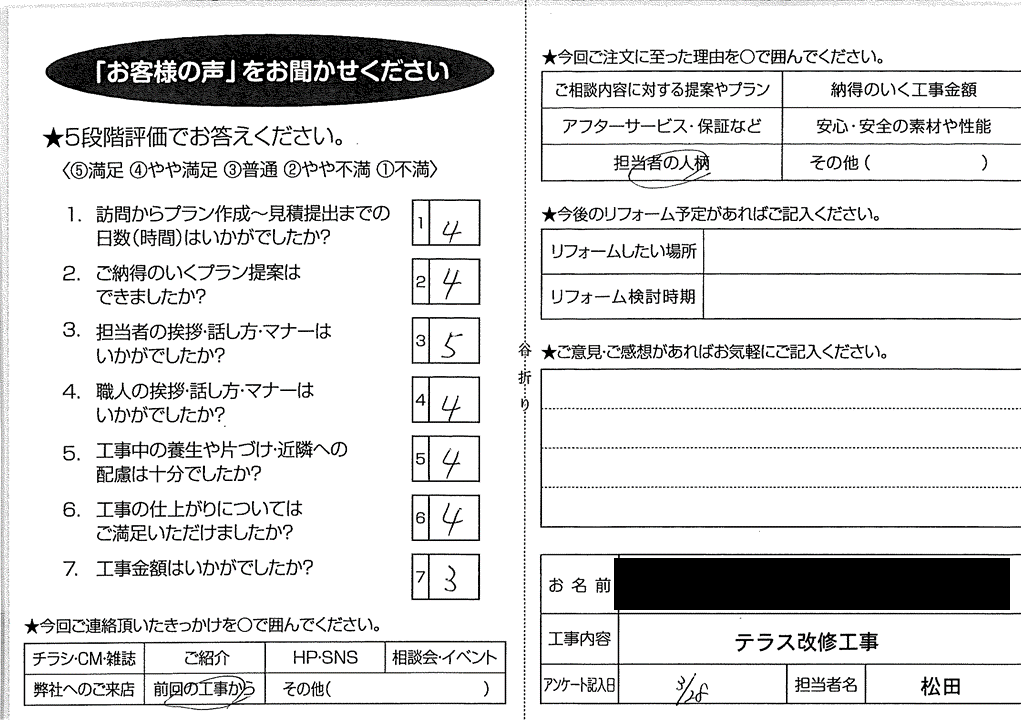 「お客様の声」をお聞かせください
★5段階評価でお答えください。
〈⑤満足 ④やや満足 ③普通 ②やや不満 ①不満〉
1. 訪問からプラン作成～見積提出までの
日数(時間)はいかがでしたか?
1 4
2. ご納得のいくプラン提案は
できましたか?
2 4
3. 担当者の挨拶・話し方・マナーは
いかがでしたか?
3 5
4. 職人の挨拶・話し方・マナーは
いかがでしたか?
4 4
5. 工事中の養生や片づけ・近隣への
配慮は十分でしたか?
5 4
6. 工事の仕上がりについては
ご満足いただけましたか?
6 4
7. 工事金額はいかがでしたか?
7 3
★今回ご連絡頂いたきっかけを○で囲んでください。
チラシ・CM・雑誌 ご紹介 HP・SNS 相談会・イベント
弊社へのご来店 前回の工事から その他( )
谷折り
★今回ご注文に至った理由を○で囲んでください。
ご相談内容に対する提案やプラン 納得のいく工事金額
アフターサービス・保証など 安心・安全の素材や性能
担当者の人柄 その他( )
★今後のリフォーム予定があればご記入ください。
リフォームしたい場所
リフォーム検討時期
★ご意見・ご感想があればお気軽にご記入ください。
お名前
工事内容 テラス改修工事
アンケート記入日 3/28 担当者名 松田